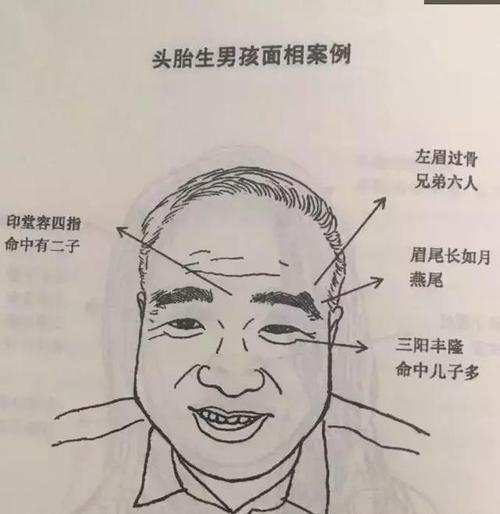 头胎生男孩面相案例
左眉过骨
兄弟六人
印堂容四指
命中有二子
眉尾长如月
燕尾
三阳丰隆
命中儿子多